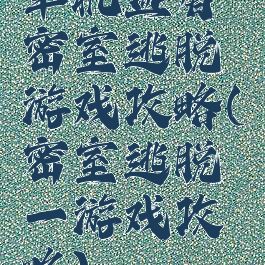 密室逃脱
游戏攻略(
密室逃脱
一游戏攻